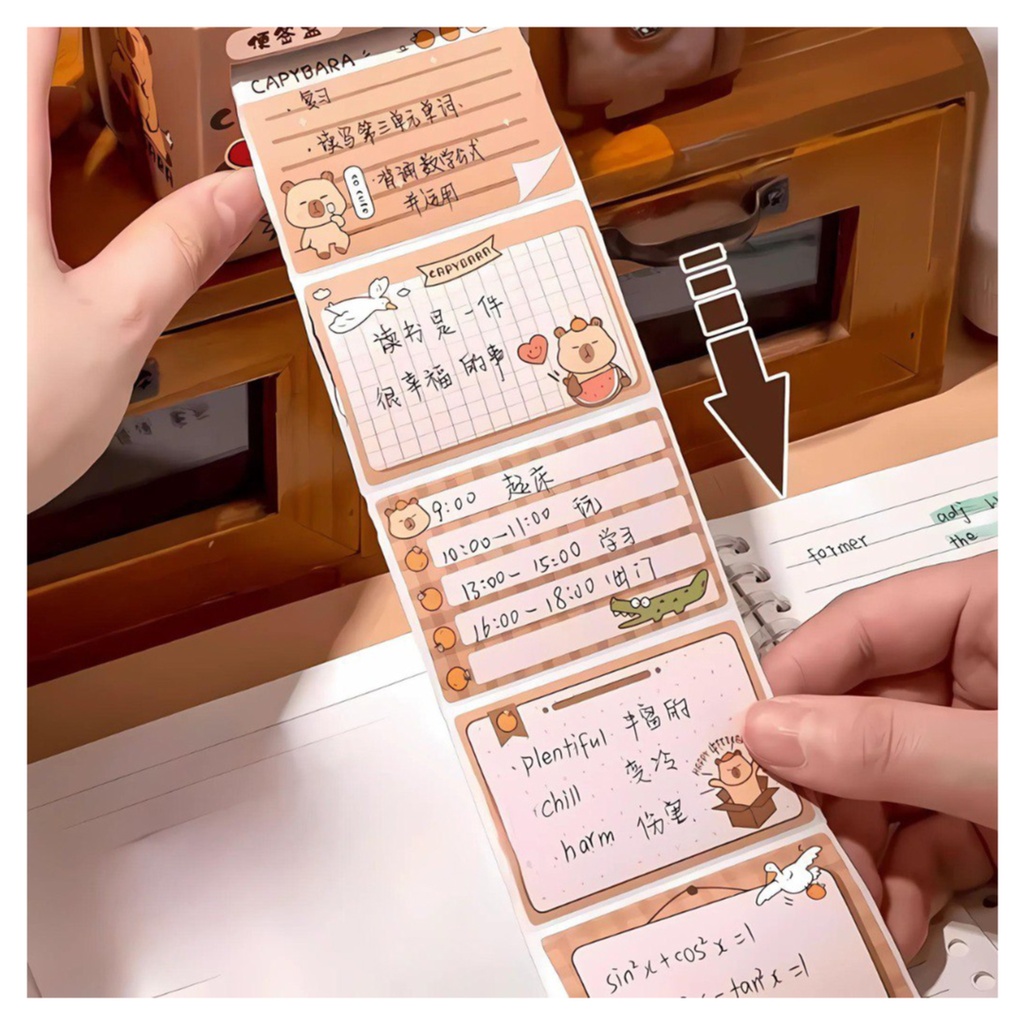 便签盒
CAPYBARA
· 复习
· 读写第三单元单词.
· 背诵数学公式
并运用
so cute
CAPYBARA
读书是一件
很幸福的事
9:00 起床
10:00-11:00 玩
13:00-15:00 学习
16:00-18:00 出门
former
adj
the
· plentiful 丰富的
chill 变冷
· harm 伤害
sin²x+cos²x=1
- tan²x=1